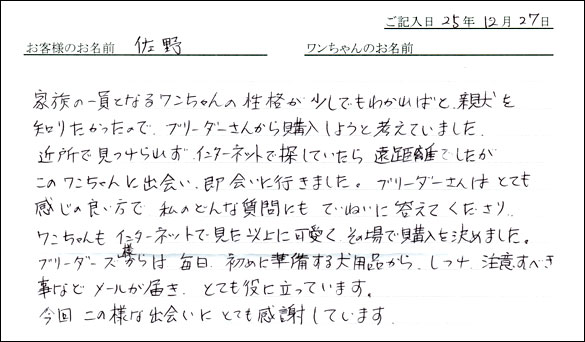 ご記入日 25年 12月 27日
お客様のお名前 佐野 ワンちゃんのお名前
家族の一員となるワンちゃんの性格が少しでもわかればと、親犬を
知りたかったので、ブリーダーさんから購入しようと考えていました。
近所で見つけられず、インターネットで探していたら 遠距離でしたが
このワンちゃんに出会い、即会いに行きました。ブリーダーさんはとても
感じの良い方で 私のどんな質問にも ていねいに答えてくださり、
ワンちゃんも インターネットで見た以上に可愛く、その場で購入を決めました。
ブリーダーズ様からは 毎日、初めに準備する犬用品から、しつけ、注意すべき
事など メールが届き、とても役に立っています。
今回 この様な出会いに とても感謝しています。